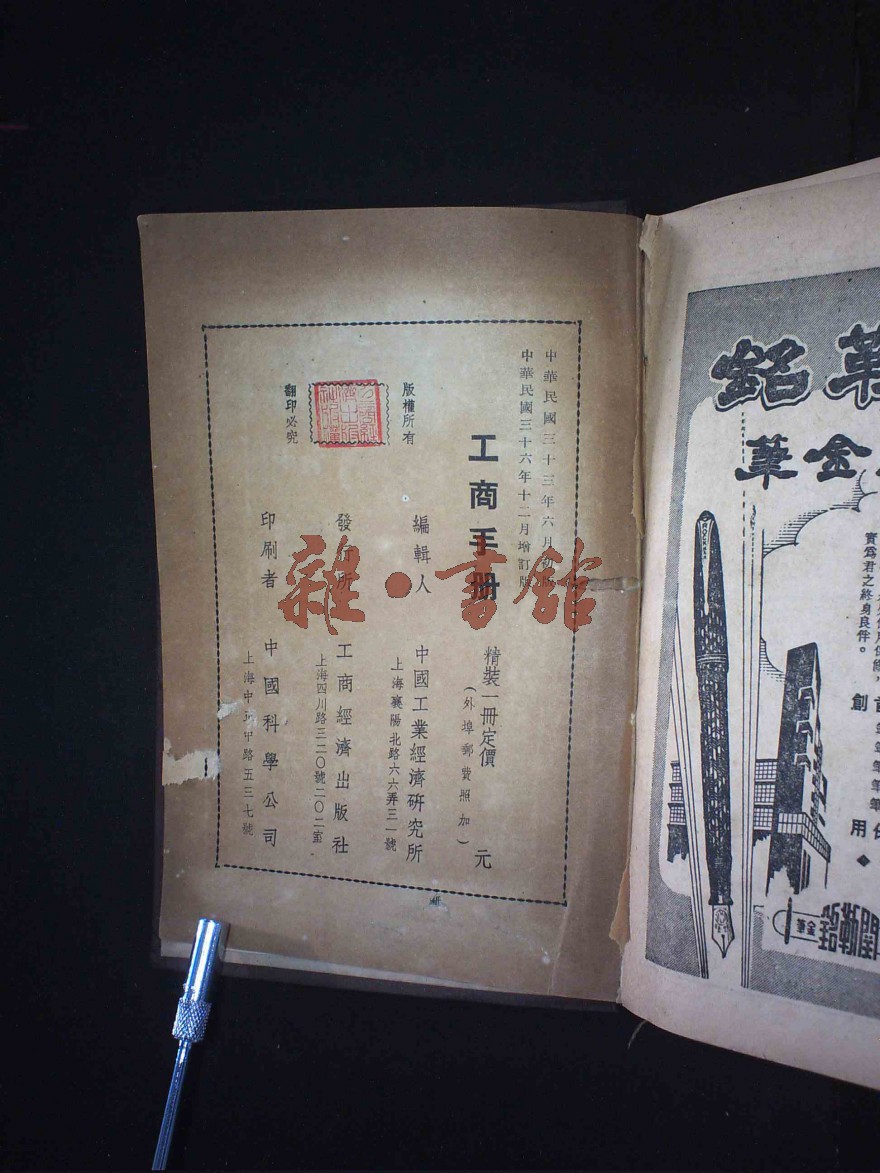 中華民國三十三年六月初版
中華民國三十六年十二月增訂版
工商手册
精裝一冊定價 元
(外埠郵費照加)
版權所有
翻印必究
編輯人 中國工業經濟研究所
上海襄陽北路六六弄三一號
發行所 工商經濟出版社
上海四川路三二〇號二〇二室
印刷者 中國科學公司
上海中正中路五三七號
雜·書館
實爲君之終身良伴。
創
用
金筆